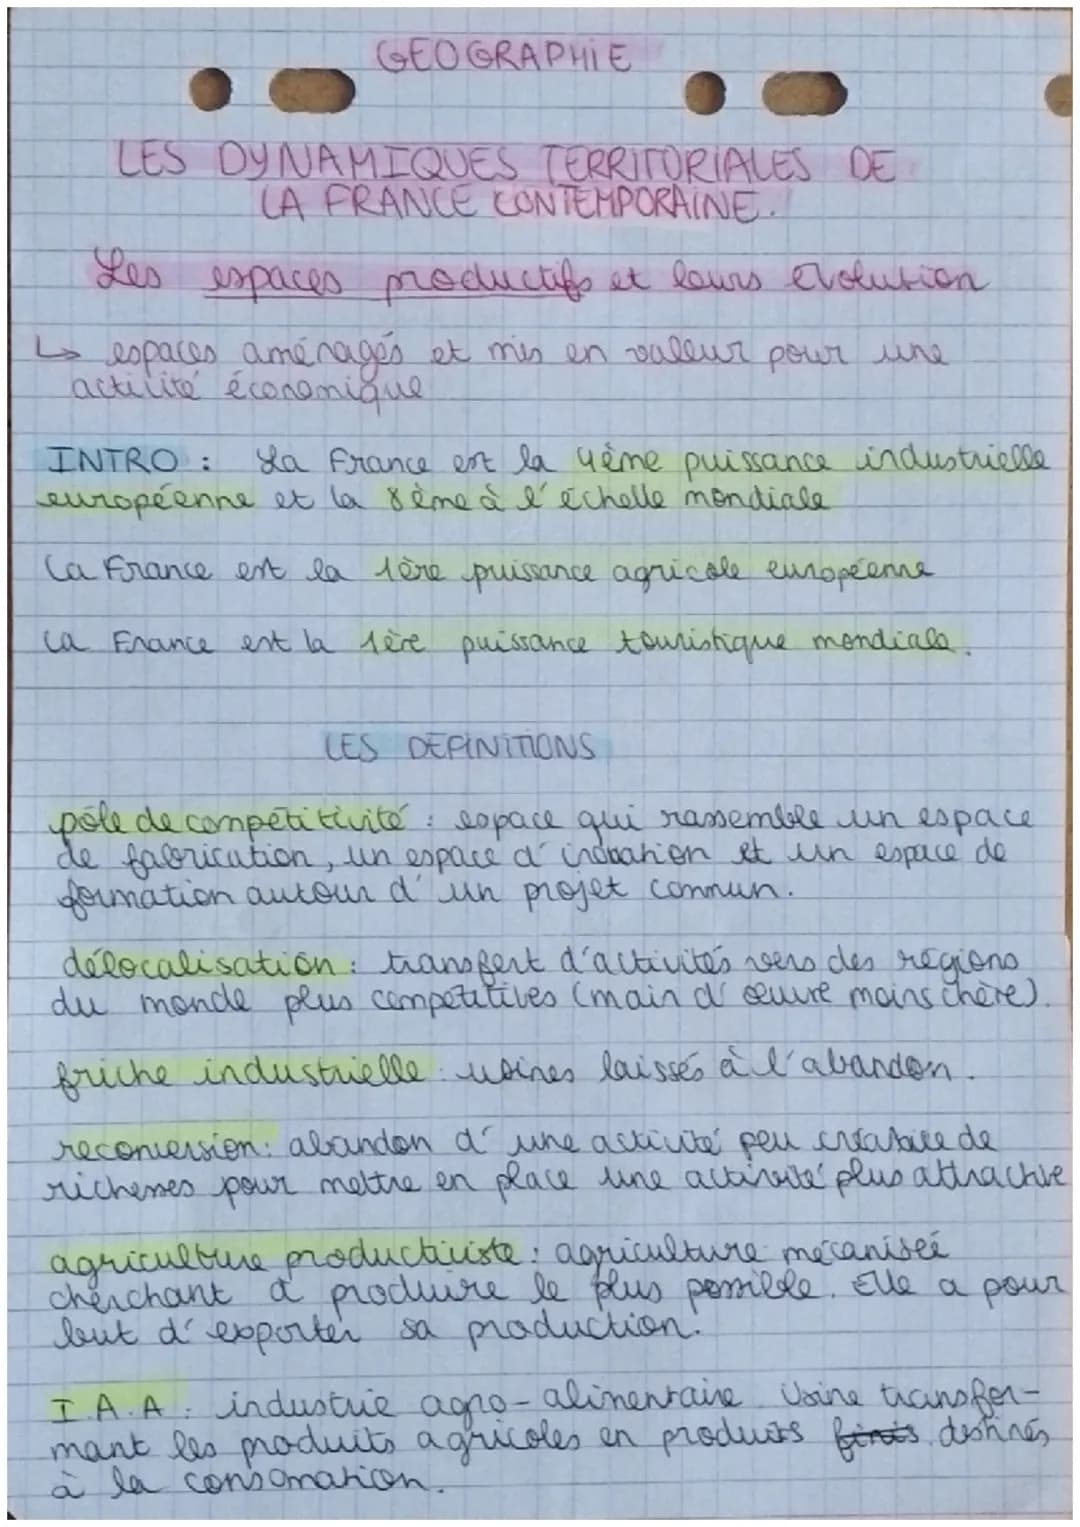 GEOGRAPHIE
LES DYNAMIQUES TERRITORIALES DE
LA FRANCE CONTEMPORAINE.
Les espaces productifs et leurs évolution
↳ espaces aménagés et mis en valeur pour une
activité économique
INTRO : La France est la 4ème puissance industrielle
européenne et la 8ème à l'échelle mondiale
La France est la 1ère puissance agricole européenne
La France est la 1ère puissance touristique mondiale.
LES DEFINITIONS
pôle de compétitivité : espace qui rassemble un espace
de fabrication, un espace d'inovation et un espace de
formation autour d'un projet commun.
délocalisation : transfert d'activités vers des régions
du monde plus compétitives (main d'œuvre moins chère).
friche industrielle : usines laissés à l'abandon.
reconversion : abandon d'une activité peu créatrice de
richesses pour mettre en place une activité plus attractive
agriculture productiviste : agriculture mécanisée
cherchant à produire le plus possible. Elle a pour
but d'exporter sa production.
I.A.A : industrie agro-alimentaire Usine transfor-
mant les produits agricoles en produits finis destinés
à la consomation.